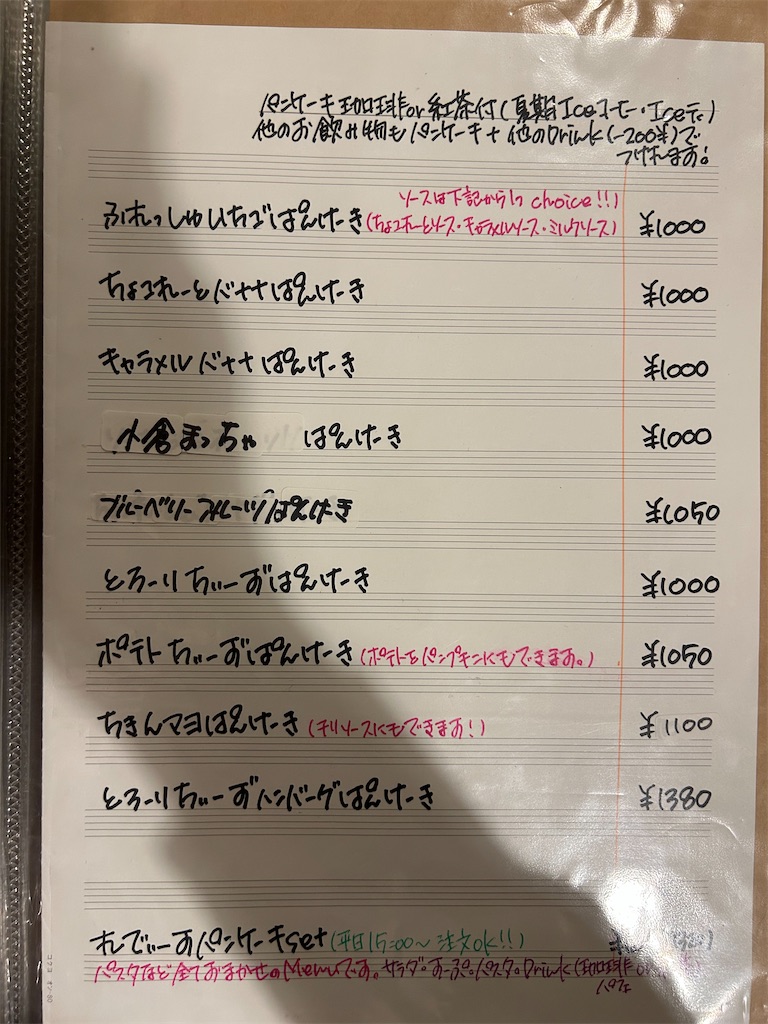 パンケーキ 珈琲or紅茶付(夏期Iceコーヒー・Iceティ)
他のお飲み物もパンケーキ+他のDrink(-200¥)で
つけれます!
ソースは下記から1つ choice!!
ふれっしゅいちごぱんけーき(ちょこれーとソース・キャラメルソース・ミルクソース) ¥1000
ちょこれーとバナナぱんけーき ¥1000
キャラメルバナナぱんけーき ¥1000
小倉まっちゃ ぱんけーき ¥1000
ブルーベリーフルーツぱんけーき ¥1050
とろーりちぃーずぱんけーき ¥1000
ポテトちぃーずぱんけーき(ポテトをパンプキンにもできます。) ¥1050
ちきんマヨぱんけーき(チリソースにもできます!) ¥1100
とろーりちぃーずハンバーグぱんけーき ¥1380
れでぃーすパンケーキset(平日15:00〜注文ok!!)
パスタなど全ておまかせのMenuです。サラダ・すーぷ・パスタ・Drink(珈琲or